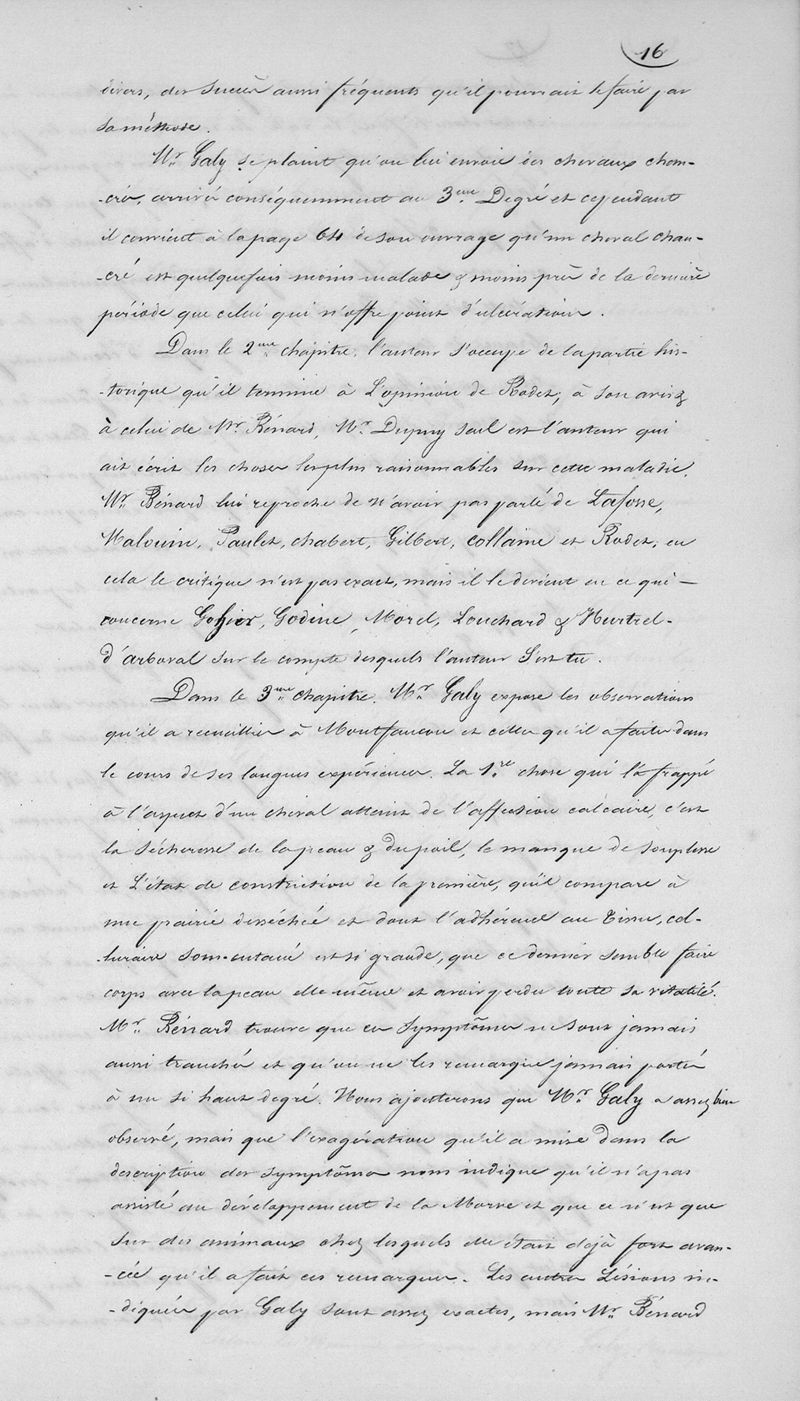 16
divers, des succès aussi fréquents qu'il pourrait le faire par
sa méthode.
Mr. Galy se plaint qu'on lui envoie des chevaux chan-
-crés, arrivés conséquemment au 3eme. Degré et cependant
il convient à la page 64 de son ouvrage qu'un cheval chan-
-cré est quelquefois moins malade & moins près de la dernière
période que celui qui n'offre point d'ulcérations.
Dans le 2eme. chapitre, l'auteur s'occupe de la partie his-
-torique qu'il termine à L'opinion de Rodet; à son avis &
à celui de Mr. Bénard, Mr. Dupuy seul est l'auteur qui
ait écrit les choses les plus raisonnables sur cette maladie.
Mr. Bénard lui reproche de n'avoir pas parlé de Lafosse,
Malouin, Paulet, chabert, Gilbert, collaine et Rodet, en
cela le critique n'est pas exact, mais il le devient en ce qui —
concerne Gohier, Godine, Morel, Louchard & Hurtrel-
d'arboval sur le compte desquels l'auteur s'est tu.
Dans le 3eme. chapitre. Mr. Galy expose les observations
qu'il a recueillies à Montfaucon et celles qu'il a faites dans
le cours de ses longues expériences. La 1re. chose qui l'a frappé
à l'aspect d'un cheval atteint de l'affection calcaire, c'est
la sécheresse de la peau & du poil, le manque de souplesse
et L'état de constriction de la première, qu'il compare à
une prairie desséchée et dont l'adhérence au Tissu cel-
-lulaire sous-cutané est si grande, que ce dernier semble faire
corps avec la peau elle même et avoir perdu toute sa vitalité.
Mr. Bénard trouve que ces symptômes ne sont jamais
aussi tranchés et qu'on ne les remarque jamais portés
à un si haut degré. Nous ajouterons que Mr. Galy a assez bien
observé, mais que l'exagération qu'il a mise dans la
description des symptômes nous indique qu'il n'a pas
assisté au développement de la Morve et que ce n'est que
sur des animaux chez lesquels elle était dejà fort avan-
-cée qu'il a fait ces remarques. Les autres Lésions in-
-diquées par Galy sont assez exactes, mais Mr. Bénard